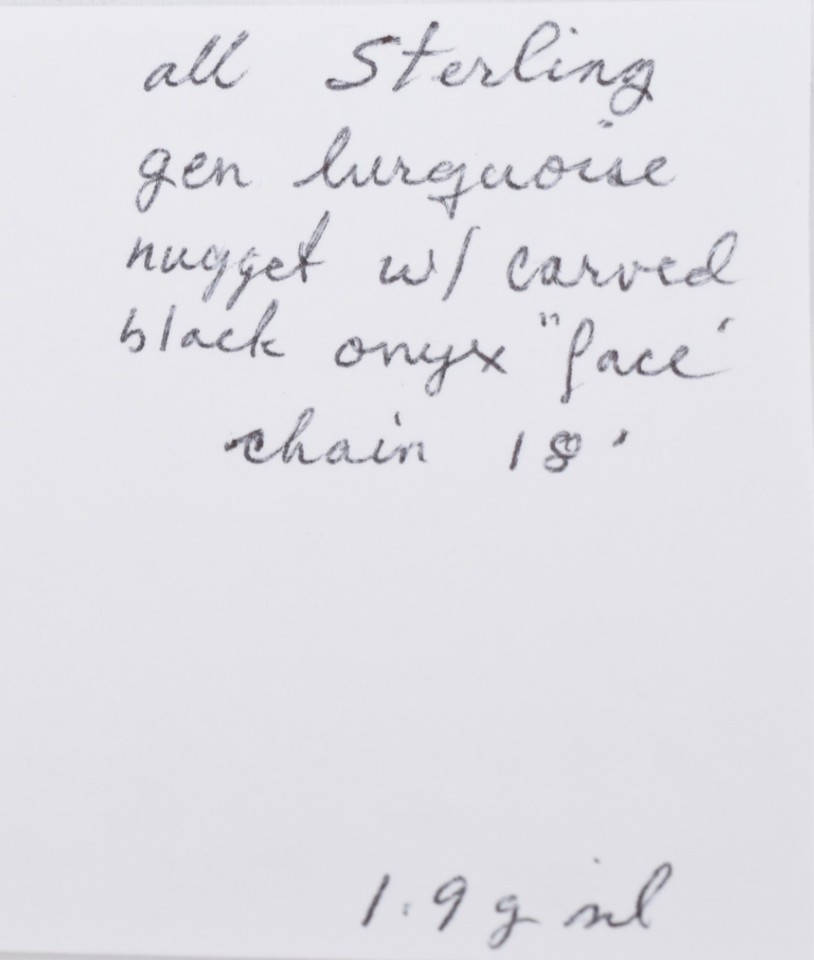 all Sterling
gen turquoise
nugget w/ carved
black onyx "face'
chain 18'
1.9 g